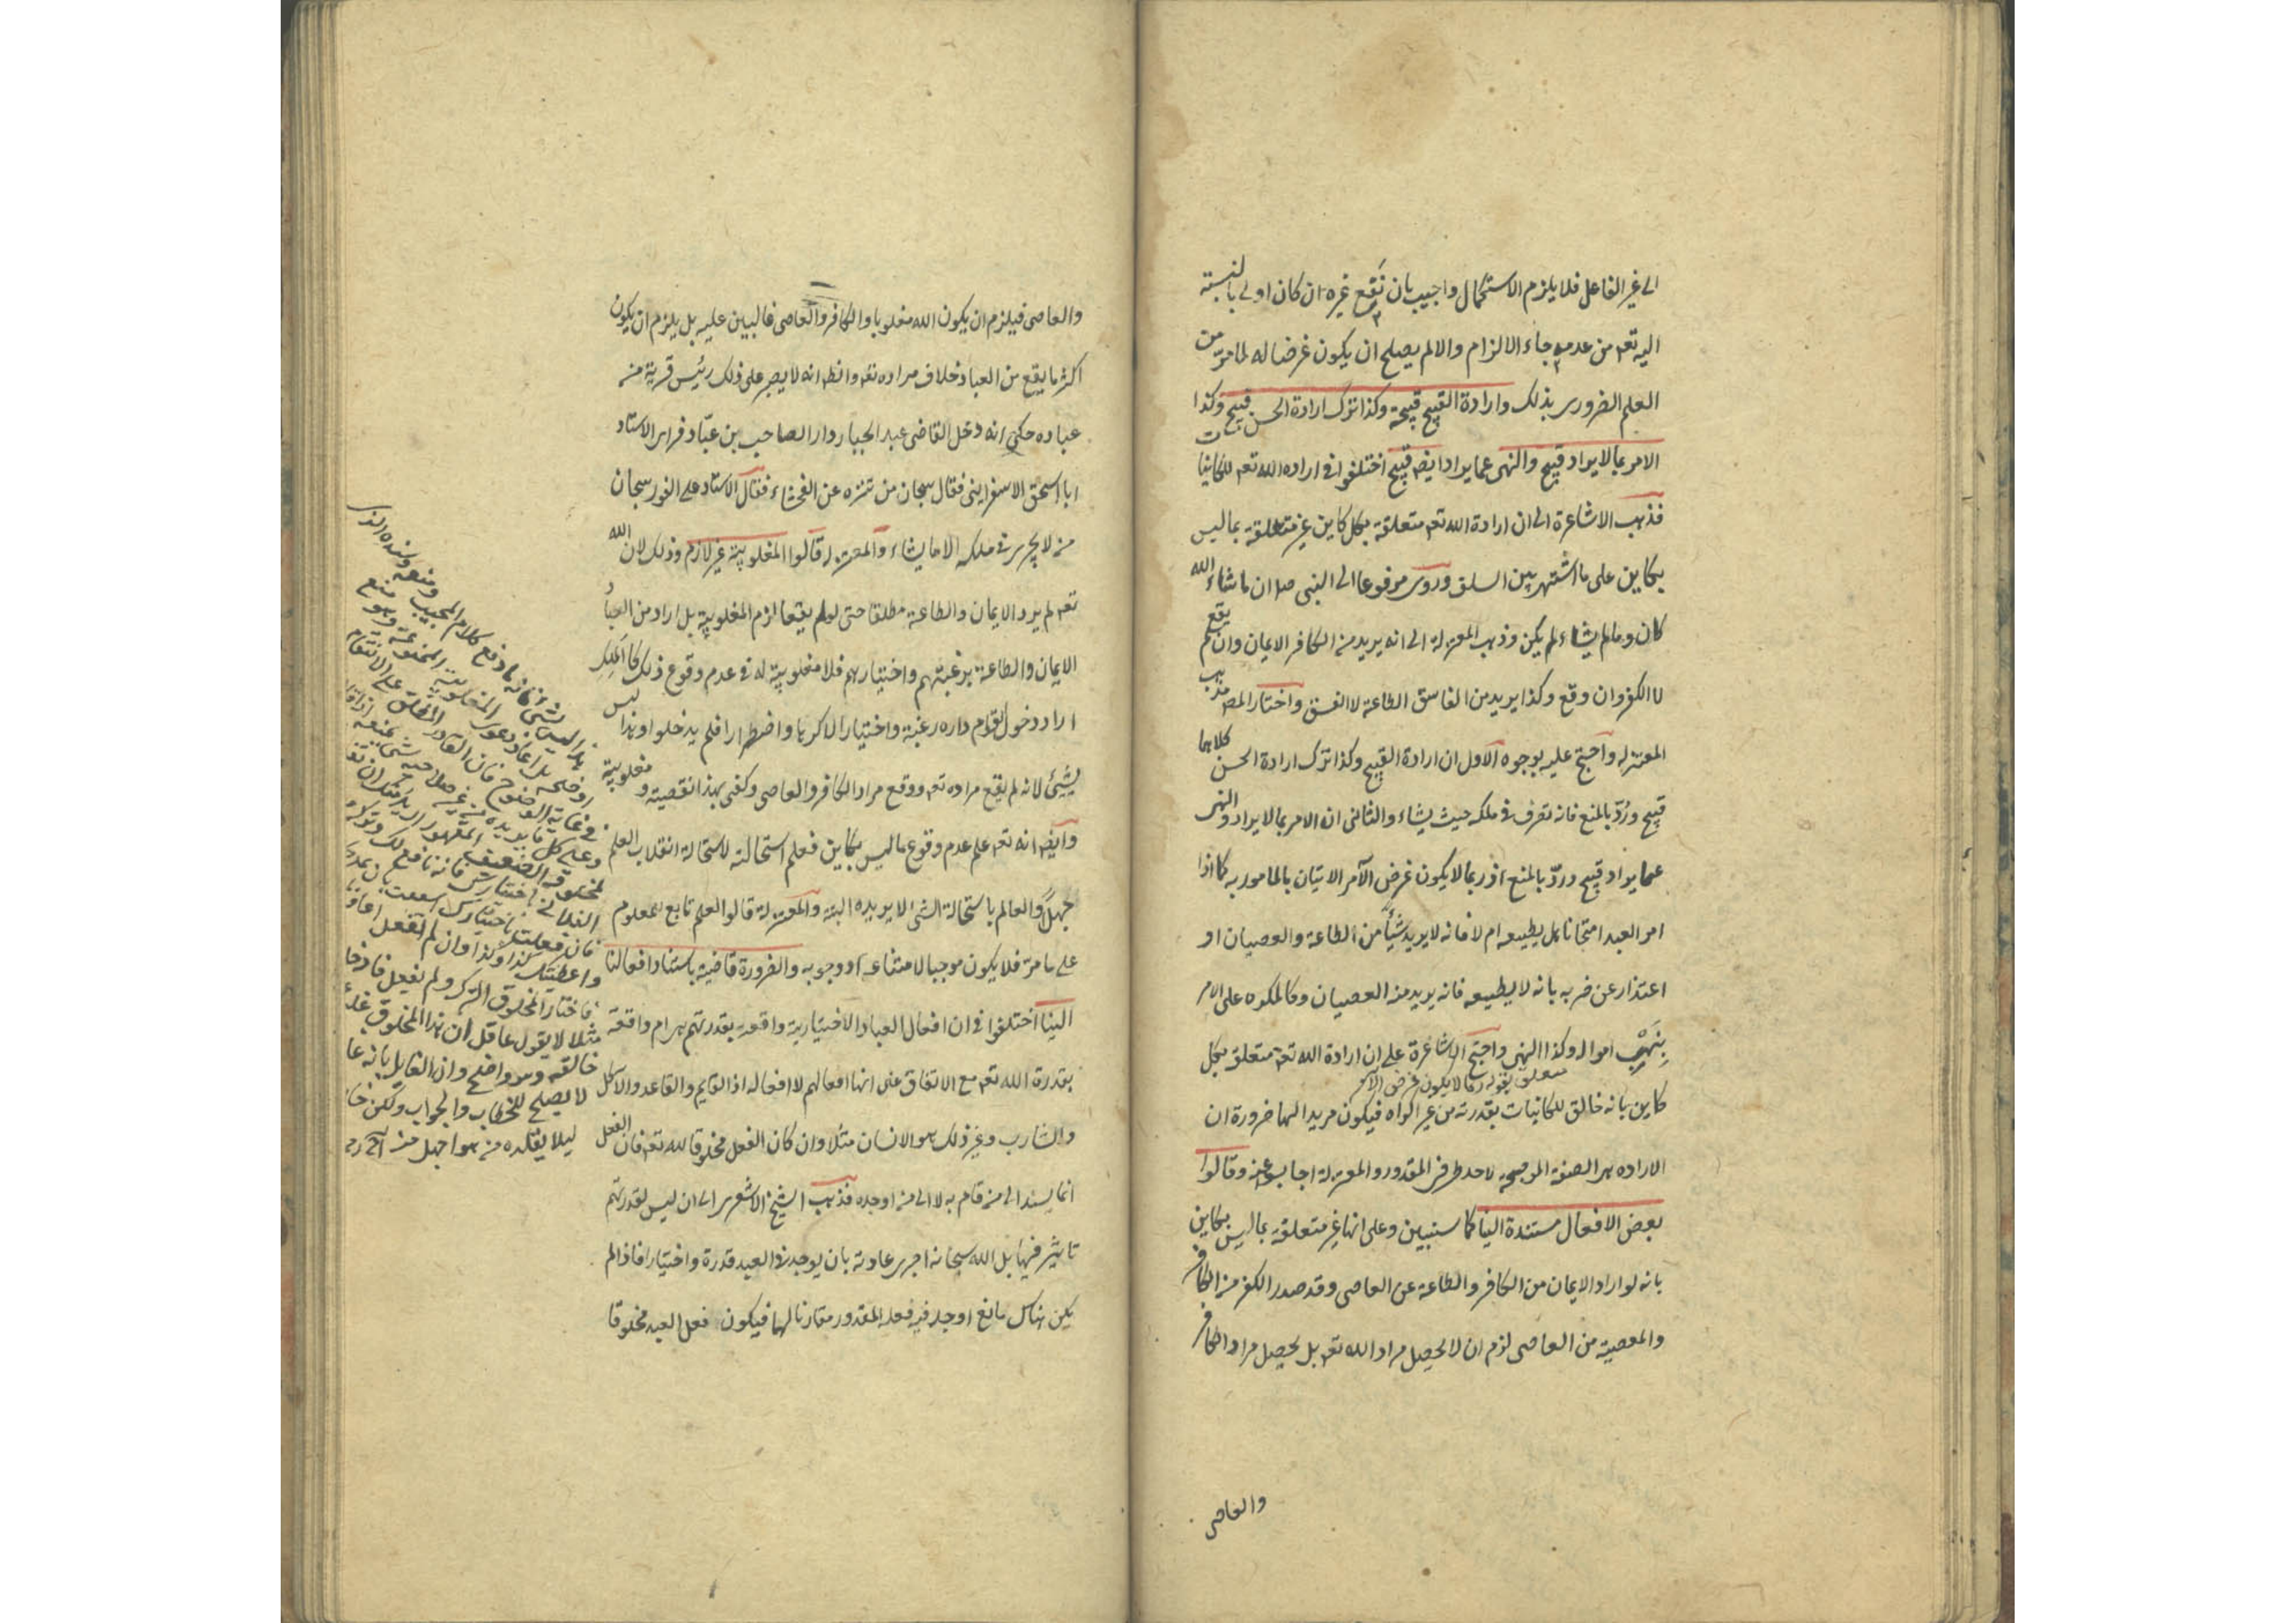 الى غير الفاعل فلا يلزم الاستكمال واجيب بان نفع غيره ان كان اولى بالنسبة
اليه تعم من عدمه جاء الالزام والا لم يصلح ان يكون غرضا له لما مر من
العلم الضرورى بذلك وارادة القبيح قبيحة وكذا ترك ارادة الحسن قبيح وكذا
الامر بما لا يراد قبيح والنهى عما يراد ايضه قبيح اختلفوا فى اراده الله تعم للكاينات
فذهب الاشاعرة الى ان ارادة الله تعم متعلقة بكل كاين غير متعلقة بما ليس
بكاين على ما اشتهر بين السلف وروى مرفوعا الى النبى صلم ان ما شاء الله
كان وما لم يشاء لم يكن وذهب المعتزلة الى انه يريد من الكافر الايمان وان لم يقع
لا الكفر وان وقع وكذا يريد من الفاسق الطاعة لا الفسق واختار المصه مذهب
المعتزله واحتج عليه بوجوه الاول ان ارادة القبيح وكذا ترك ارادة الحسن كلاهما
قبيح ورُدّ بالمنع فانه تصرف فى ملكه حيث يشاء والثانى ان الامر بما لا يراد والنهى
عما يراد قبيح وردّ بالمنع اذ ربما لا يكون غرض الآمر الاتيان بالمامور به كما اذا
امر العبد امتحانا هل يطيعه ام لا فانه لا يريد شيئًا من الطاعة والعصيان او
اعتذارا عن ضربه بانه لا يطيعه فانه يريد منه العصيان وكالمكره على الامر
بِنَهْبِ امواله وكذا النهى واحتج الاشاعرة على ان ارادة الله تعم متعلق بكل
متعلق بقوله ربما لا يكون غرض الآمر
كاين بانه خالق للكاينات بقدرته من غير اكراه فيكون مريدا لها ضرورة ان
الاراده هى الصفة المرجحة لاحد طرفى المقدور والمعتزلة اجابوا عنه وقالوا
بعض الافعال مستندة الينا كما سنبين وعلى انها غير متعلقة بما ليس بكاين
بانه لو اراد الايمان من الكافر والطاعة عن العاصى وقد صدر الكفر من الكافر
والمعصية من العاصى لزم ان لا يحصل مراد الله تعم بل يحصل مراد الكافر
والعاصى
والعاصى فيلزم ان يكون الله مغلوبا والكافر والعاصى غالبين عليه بل يلزم ان يكون
اكثر ما يقع من العباد خلاف مراده تعم والظ انه لا يصبر على ذلك رئيس قرية من
عباده حكى انه دخل القاضى عبد الجبار دار الصاحب بن عبّاد فراى الاستاد
ابا اسحق الاسفراينى فقال سبحان من تنزه عن الفحشاء فقال الاستاد على الفور سبحان
من لا يجرى فى ملكه الا ما يشاء والمعتزله قالوا المغلوبية غير لازم وذلك لان الله
تعم لم يرد الايمان والطاعة مطلقا حتى لو لم يقعا لزم المغلوبية بل اراد من العباد
الايمان والطاعة برغبتهم واختيارهم فلا مغلوبية له فى عدم وقوع ذلك كالملك
اراد دخول القوم داره رغبة واختيارا لا كرها واضطرارا فلم يدخلوا وهذا ليس
بشيئ لانه لم يقع مراده تعم ووقع مراد الكافر والعاصى وكفى بهذا نقصية ومغلوبية
وايضه انه تعم علم عدم وقوع ما ليس بكاين فعلم استحالته لاستحالة انقلاب العلم
جهلاً والعالم باستحالة الشى لا يريده البتة والمعتزلة قالوا العلم تابع للمعلوم
على ما مرّ فلا يكون موجبا لامتناعه او وجوبه والضرورة قاضية باستناد افعالنا
الينا اختلفوا فى ان افعال العباد الاختيارية واقعة بقدرتهم ام واقعة
بقدرة الله تعم مع الاتفاق على انها افعالهم لا افعاله اذ القايم والقاعد والاكل
والشارب وغير ذلك هو الانسان مثلا وان كان الفعل مخلوقا لله تعم فان الفعل
انما يسند الى من قام به لا الى من اوجده فذهب الشيخ الاشعرى الى ان ليس لقدرتهم
تاثير فيها بل الله سبحانه اجرى عادته بان يوجد فى العبد قدرة واختيارا فاذا لم
يكن هناك مانع اوجد فيه فعله المقدور مقارنا لهما فيكون فعل العبد مخلوقا
هذا ليس بشئ فانه ما دفع كلام المجيب ومنعه وسنده الذى
اوضحه بل اعاد دعوى المغلوبية الممنوعة وهو منع
فى غاية الوضوح فان القادر المطلق على الانتقام
وعلى كل ما يريده
فاختار المخلوق الترك ولم يفعل
مثلا لا يقول عاقل ان هذا المخلوق غلب
خالقه وهو واضح وان القايل بانه
لا يصلح للخطاب والجواب ولكن
ليلا يقلده من هو اجهل منه